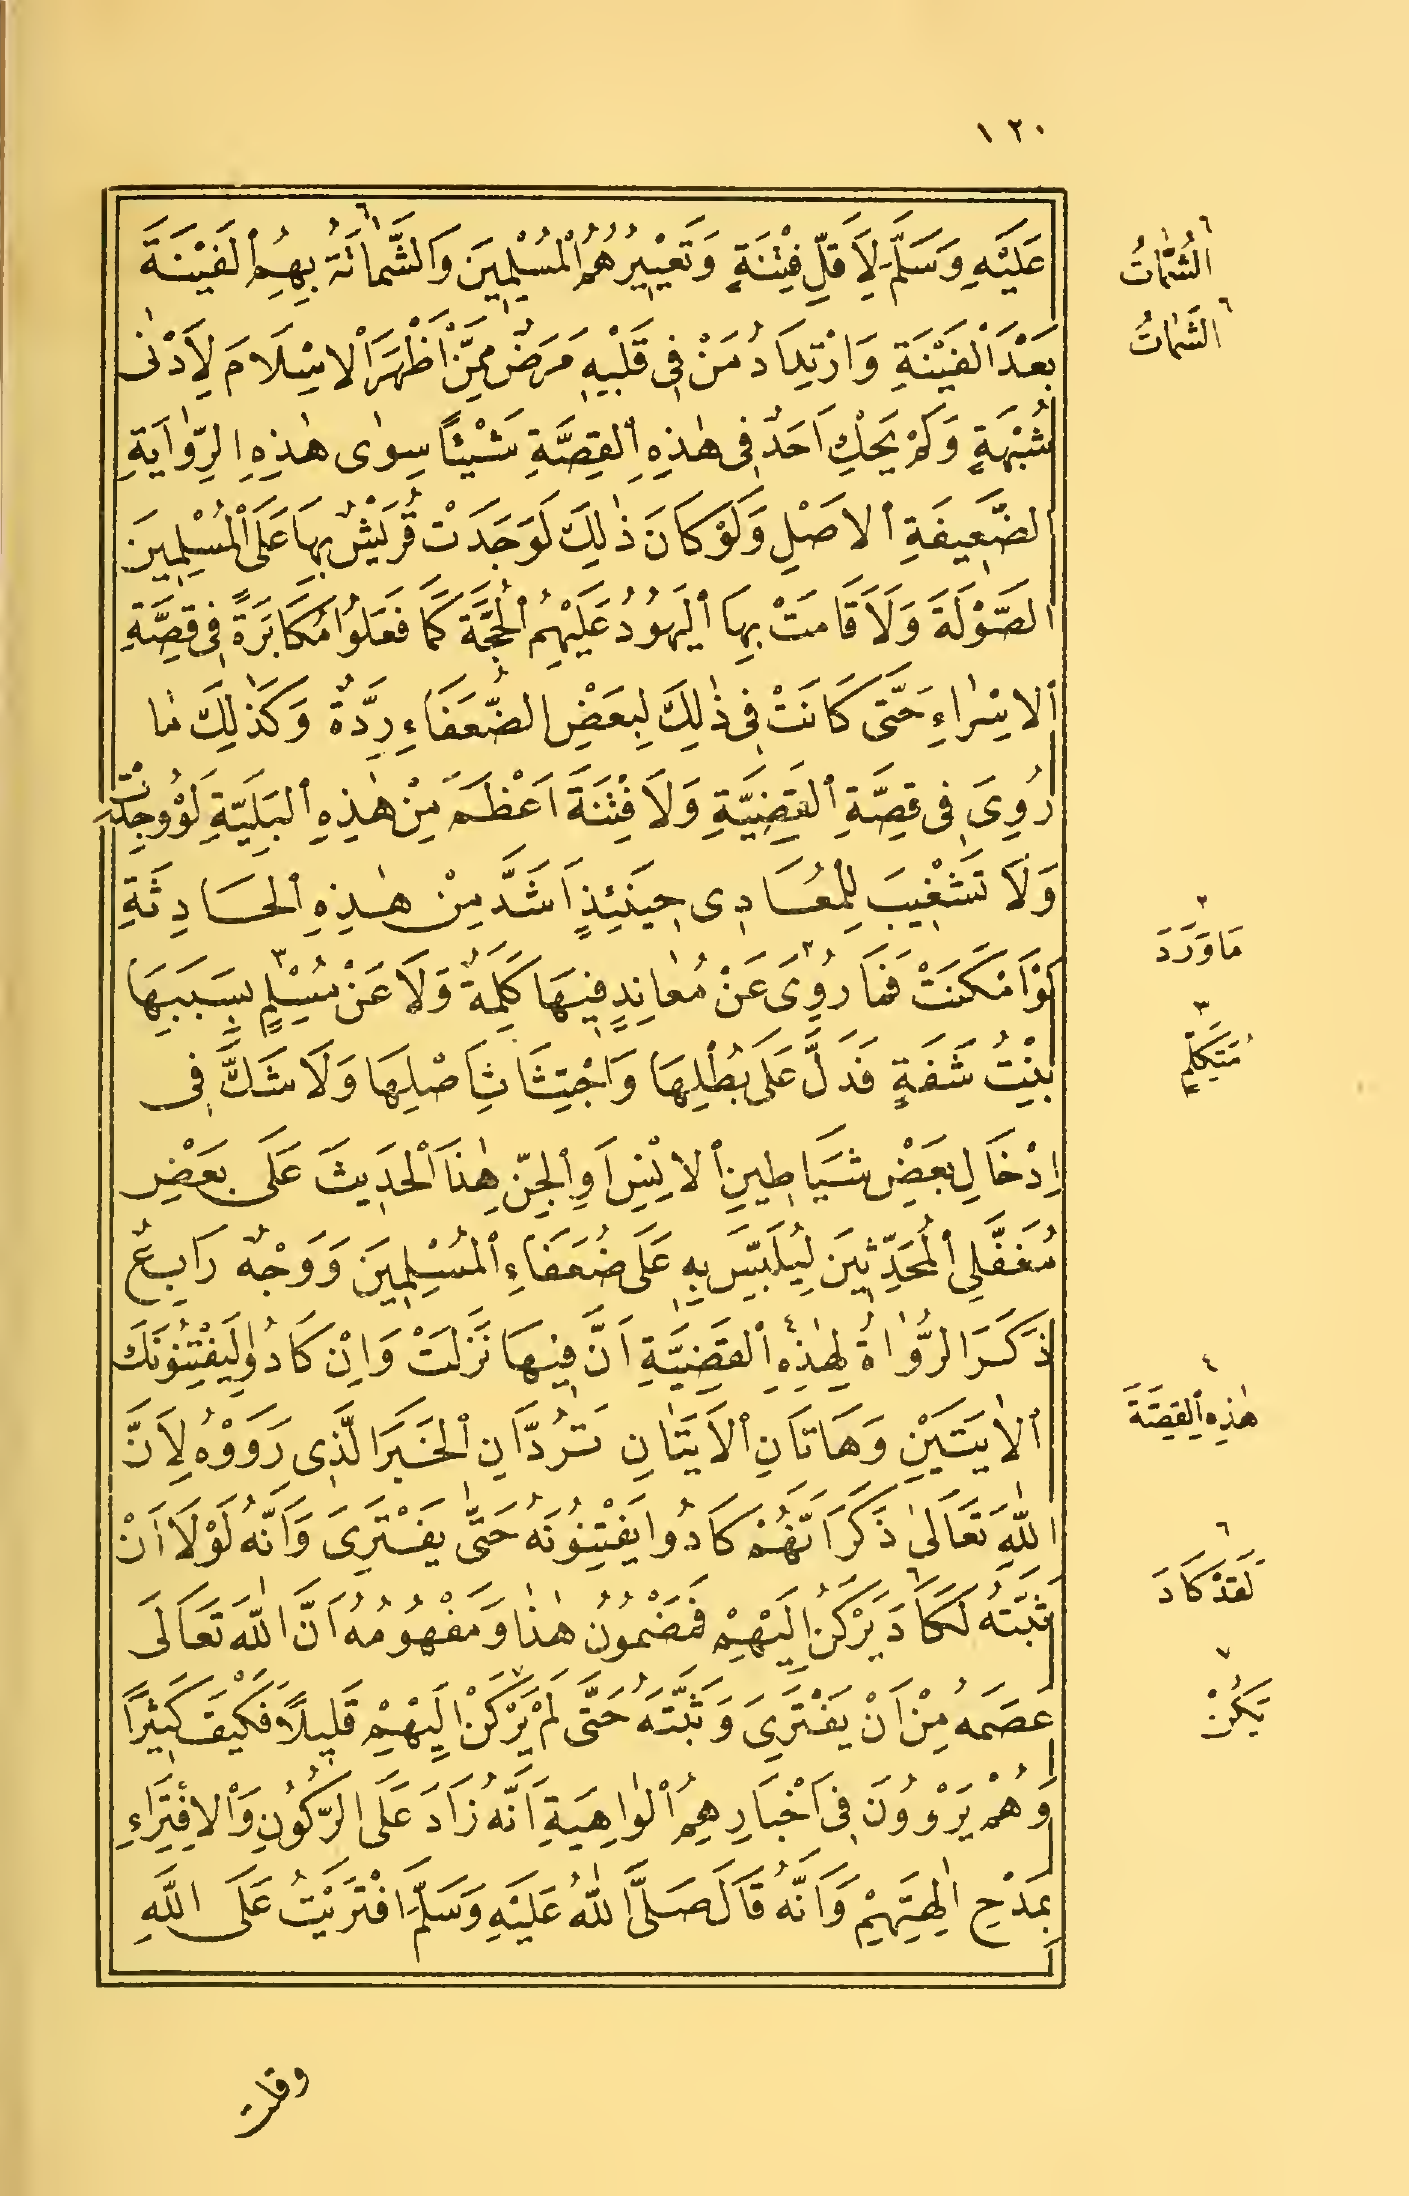 ١٢٠
عَلَيْهِ وَسَلَّمَ لِأَقَلِّ فِتْنَةٍ وَتَعْيِيرُهُمُ الْمُسْلِمِينَ وَالشَّمَاتَةُ بِهِمُ الْفَيْنَةَ
بَعْدَ الْفَيْنَةِ وَارْتِدَادُ مَنْ فِي قَلْبِهِ مَرَضٌ مِمَّنْ أَظْهَرَ الْإِسْلَامَ لِأَدْنَى
شُبْهَةٍ وَلَمْ يَحْكِ أَحَدٌ فِي هٰذِهِ الْقِصَّةِ شَيْئًا سِوَى هٰذِهِ الرِّوَايَةِ
الضَّعِيفَةِ الْأَصْلِ وَلَوْ كَانَ ذٰلِكَ لَوَجَدَتْ قُرَيْشٌ بِهَا عَلَى الْمُسْلِمِينَ
الصَّوْلَةَ وَلَأَقَامَتْ بِهَا الْيَهُودُ عَلَيْهِمُ الْحُجَّةَ كَمَا فَعَلُوا مُكَابَرَةً فِي قِصَّةِ
الْإِسْرَاءِ حَتَّى كَانَتْ فِي ذٰلِكَ لِبَعْضِ الضُّعَفَاءِ رِدَّةٌ وَكَذٰلِكَ مَا
رُوِيَ فِي قِصَّةِ الْقَضِيَّةِ وَلَا فِتْنَةَ أَعْظَمَ مِنْ هٰذِهِ الْبَلِيَّةِ لَوْ وُجِدَتْ
وَلَا تَشْغِيبَ لِلْمُعَادِي حِينَئِذٍ أَشَدَّ مِنْ هٰذِهِ الْحَادِثَةِ
لَوْ أَمْكَنَتْ فَمَا رُوِيَ ٢ عَنْ مُعَانِدٍ فِيهَا كَلِمَةٌ وَلَا عَنْ مُسْلِمٍ ٣ بِسَبَبِهَا
بِنْتُ شَفَةٍ فَدَلَّ عَلَى بُطْلِهَا وَاجْتِثَاثِ أَصْلِهَا وَلَا شَكَّ فِي
إِدْخَالِ بَعْضِ شَيَاطِينِ الْإِنْسِ أَوِ الْجِنِّ هٰذَا الْحَدِيثَ عَلَى بَعْضِ
مُغَفَّلِي الْمُحَدِّثِينَ لِيُلَبِّسَ بِهِ عَلَى ضُعَفَاءِ الْمُسْلِمِينَ وَوَجْهٌ رَابِعٌ
ذَكَرَ الرُّوَاةُ لِهٰذِهِ ٤ الْقَضِيَّةِ أَنَّ فِيهَا نَزَلَتْ وَإِنْ كَادُوا لَيَفْتِنُونَكَ
الْآيَتَيْنِ وَهَاتَانِ الْآيَتَانِ تَرُدَّانِ الْخَبَرَ الَّذِي رَوَوْهُ لِأَنَّ
اللّٰهَ تَعَالَى ذَكَرَ أَنَّهُمْ كَادُوا يَفْتِنُونَهُ حَتَّى يَفْتَرِيَ وَأَنَّهُ لَوْلَا أَنْ
ثَبَّتَهُ لَكَادَ ٦ يَرْكَنُ إِلَيْهِمْ فَمَضْمُونُ هٰذَا وَمَفْهُومُهُ أَنَّ اللّٰهَ تَعَالَى
عَصَمَهُ مِنْ أَنْ يَفْتَرِيَ وَثَبَّتَهُ حَتَّى لَمْ يَرْكَنْ ٧ إِلَيْهِمْ قَلِيلًا فَكَيْفَ كَثِيرًا
وَهُمْ يَرْوُونَ فِي أَخْبَارِهِمُ الْوَاهِيَةِ أَنَّهُ زَادَ عَلَى الرُّكُونِ وَالْإِفْتِرَاءِ
بِمَدْحِ اٰلِهَتِهِمْ وَأَنَّهُ قَالَ صَلَّى اللّٰهُ عَلَيْهِ وَسَلَّمَ افْتَرَيْتُ عَلَى اللّٰهِ
٦
الشُّمَّاتُ
٦
الشَّمَاتُ
٢
مَا وَرَدَ
٣
مُتَكَلِّمٍ
٤
هٰذِهِ الْقِصَّةَ
٦
لَقَدْ كَادَ
٧
يَكُنْ
وقلت